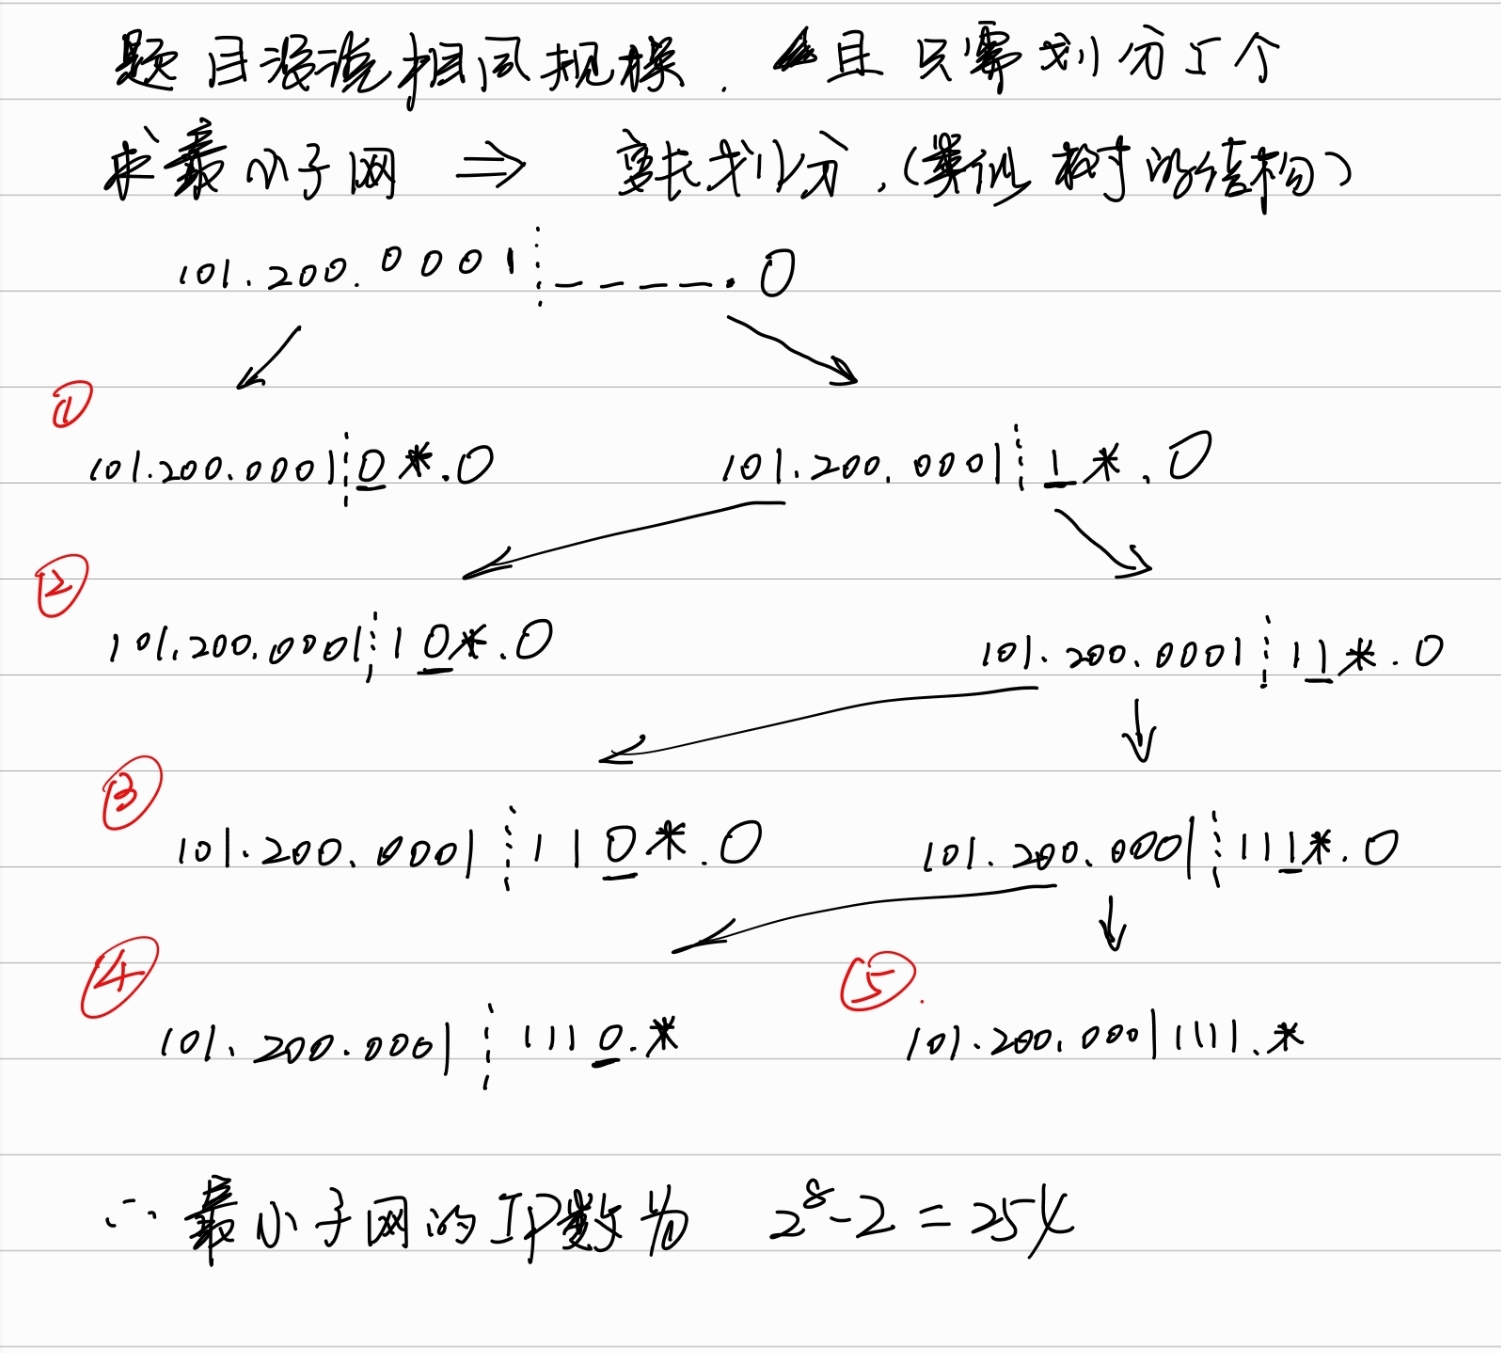 题目没说相同规模.且只需划分5个
求最小子网 ⇒ 变长划分.(类似树的结构)
101.200.0001┊----.0
①
101.200.0001┊0*.0 101.200.0001┊1*.0
②
101.200.0001┊10*.0 101.200.0001┊11*.0
③
101.200.0001┊110*.0 101.200.0001┊111*.0
④ ⑤.
101.200.0001┊1110.* 101.200.00011111.*
∴最小子网的IP数为 2⁸-2=254